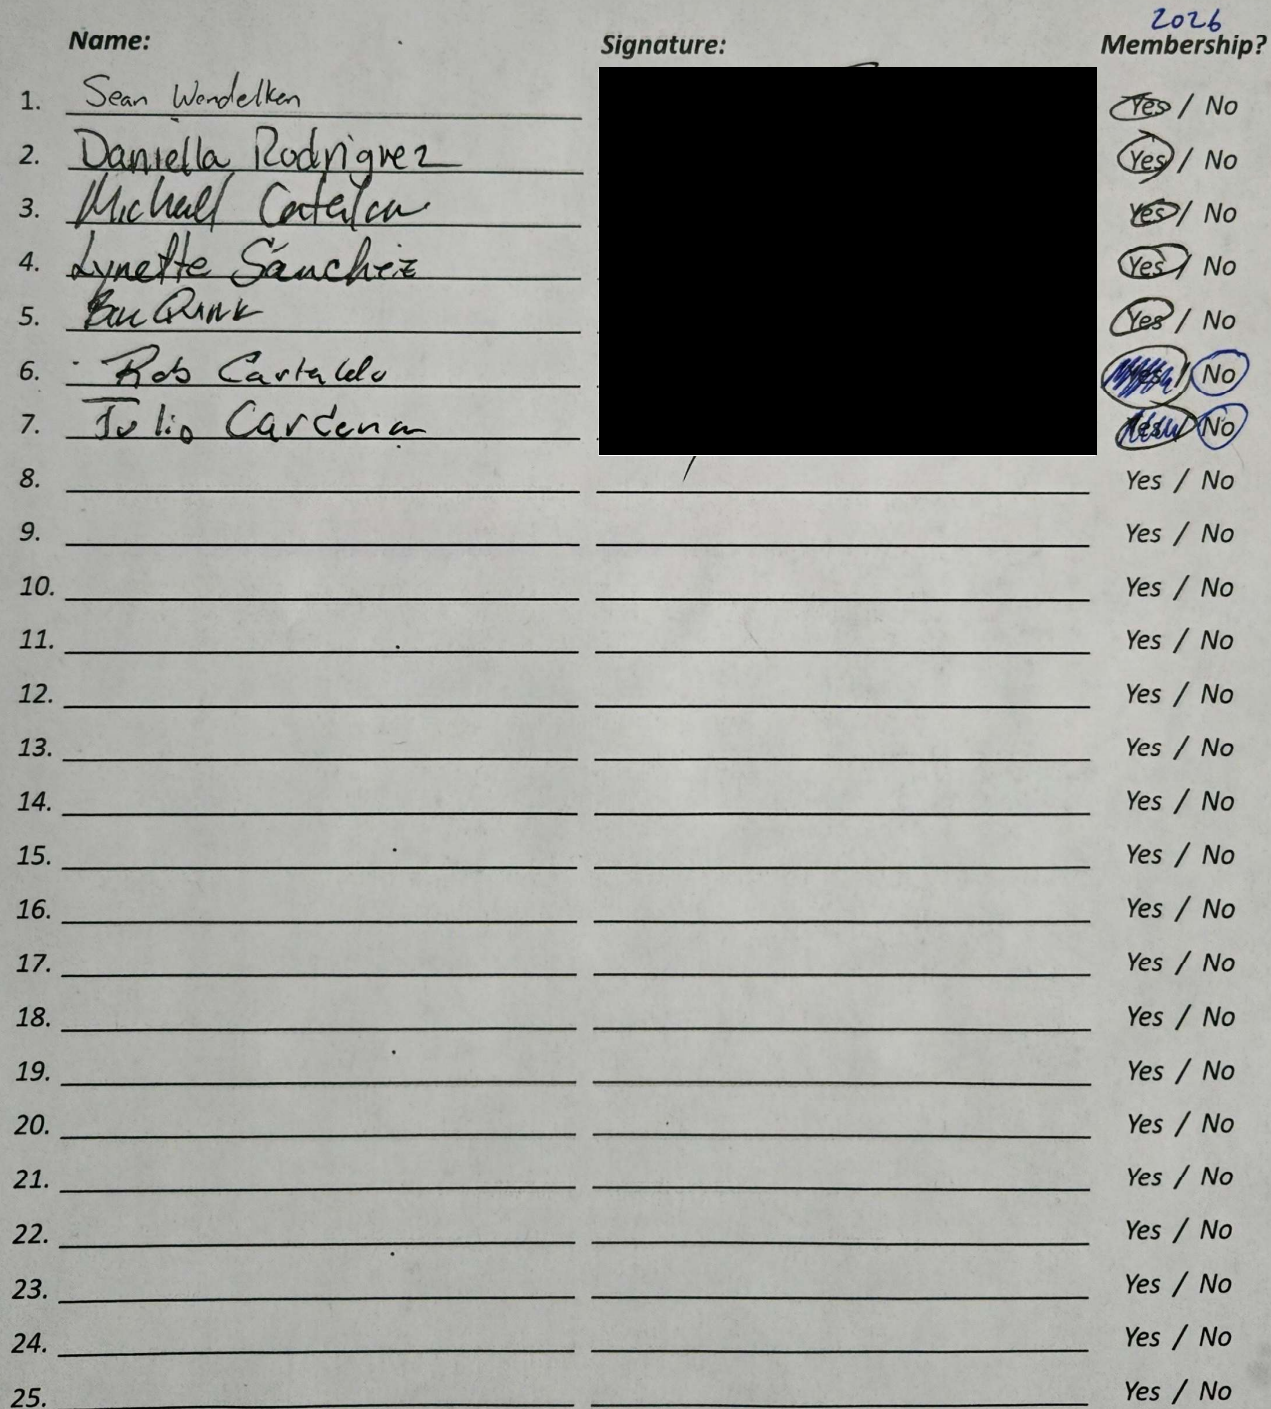 2026
Name: Signature: Membership?
1. Sean Wendelken Yes / No
2. Daniella Rodriguez Yes / No
3. Michael Yes / No
4. Lynette Sanchez Yes / No
5. Yes / No
6. Rob Yes / No
7. Julio Cardenas Yes / No
8. Yes / No
9. Yes / No
10. Yes / No
11. Yes / No
12. Yes / No
13. Yes / No
14. Yes / No
15. Yes / No
16. Yes / No
17. Yes / No
18. Yes / No
19. Yes / No
20. Yes / No
21. Yes / No
22. Yes / No
23. Yes / No
24. Yes / No
25. Yes / No